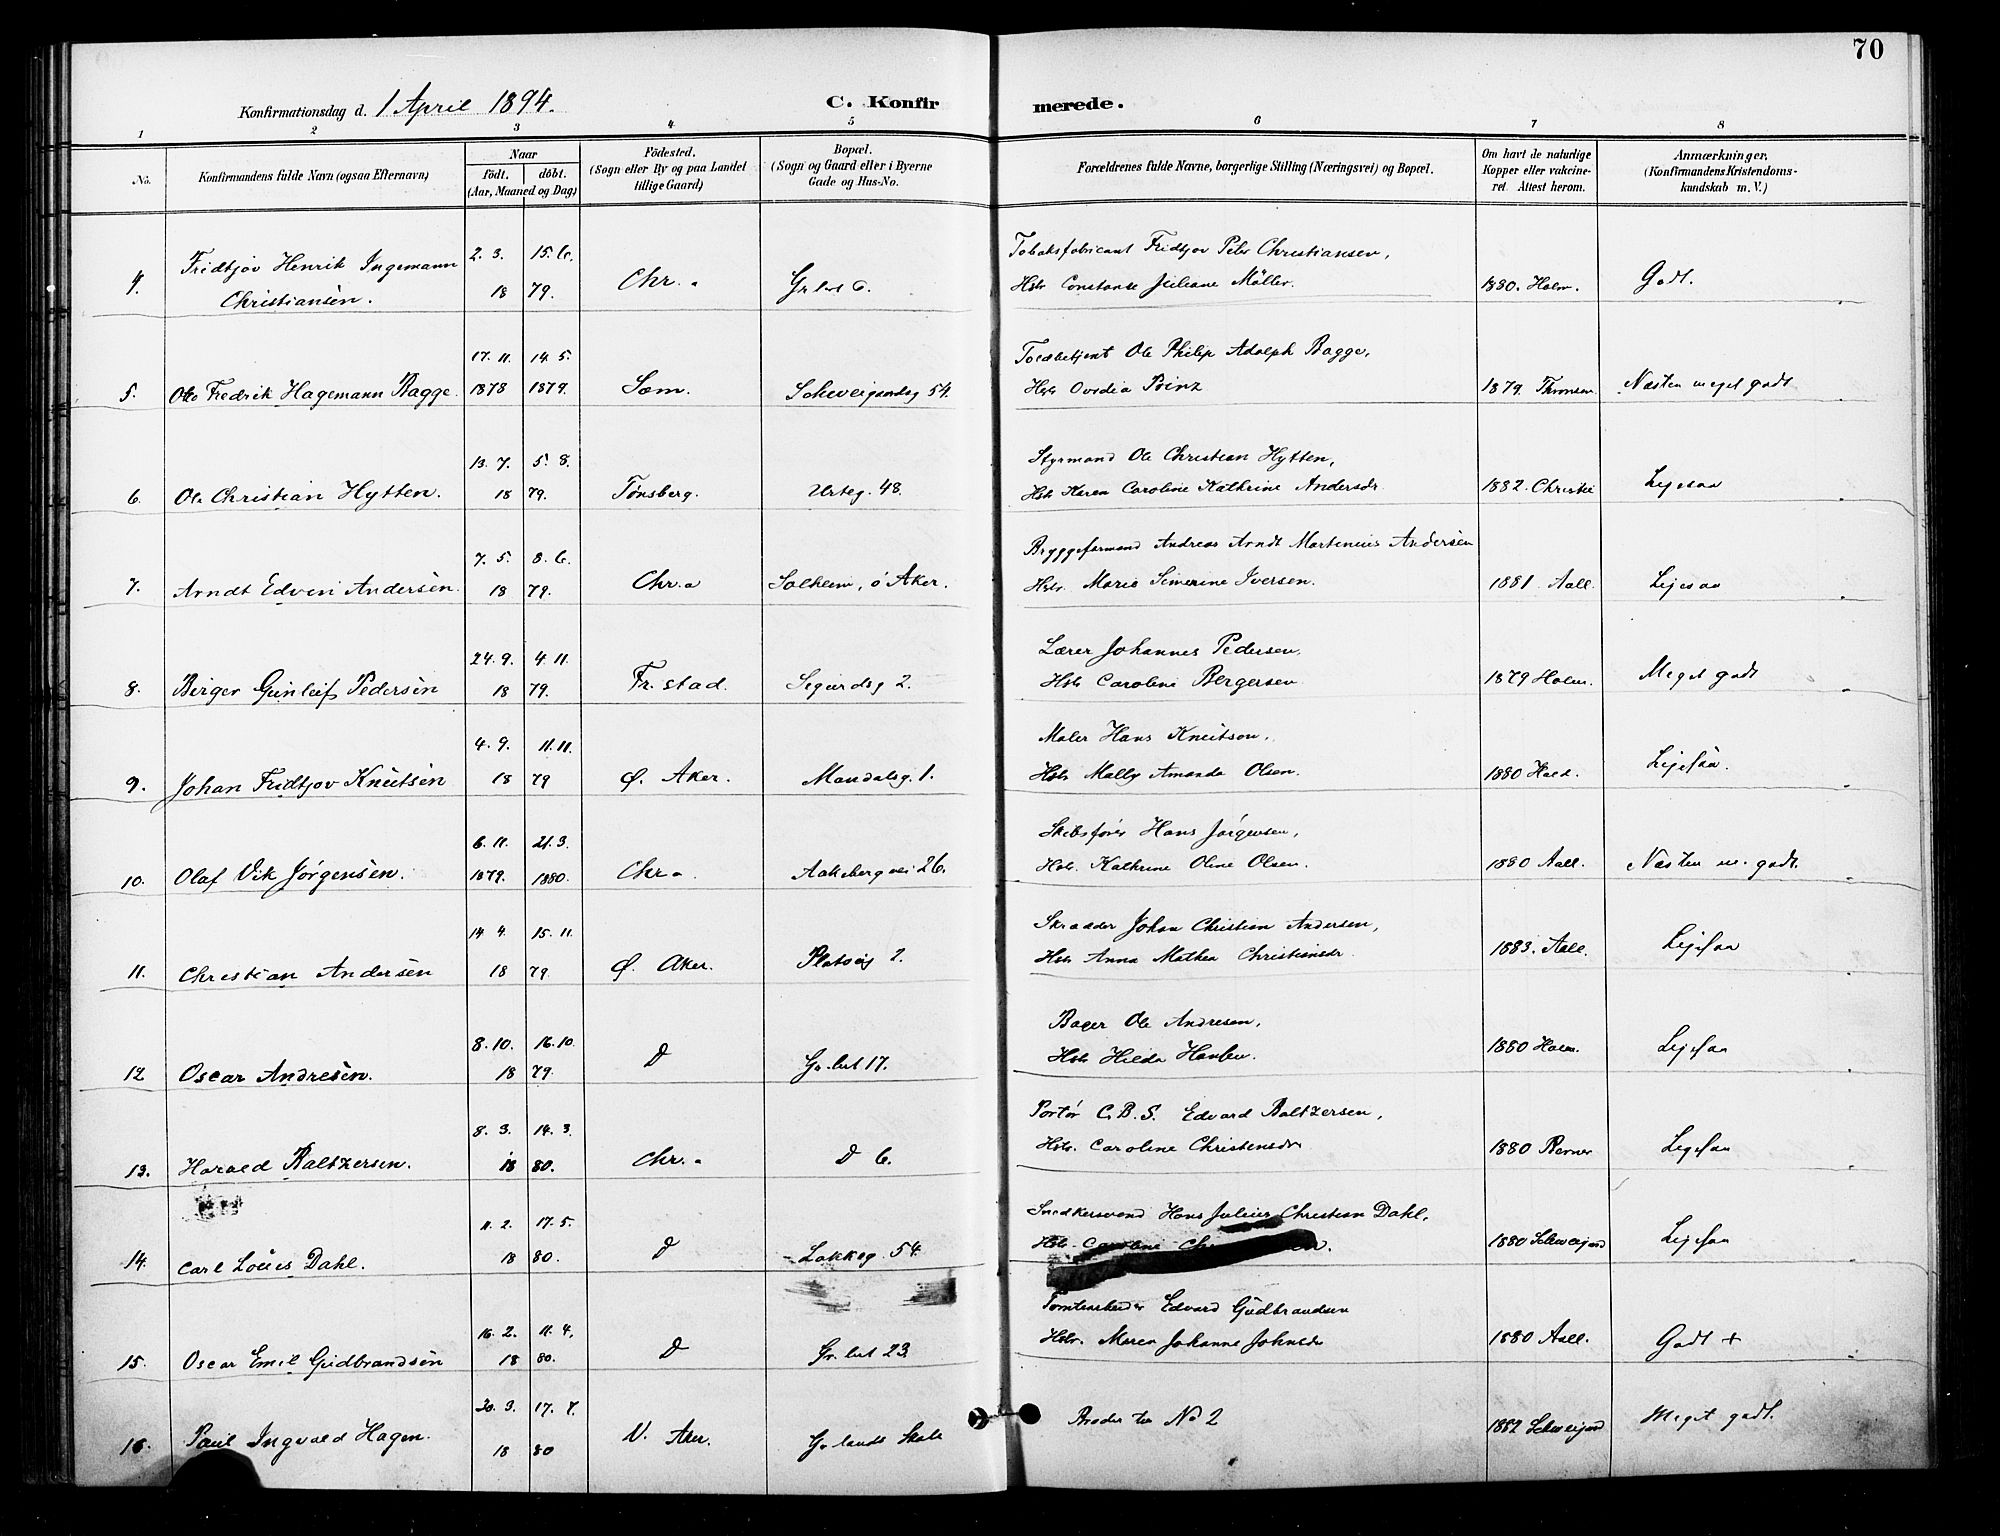 70
Konfirmationsdag d. 1 April 1894.
C. Konfirmerede.
1 2 3 4 5 6 7 8
No.
Konfirmandens fulde Navn (ogsaa Efternavn)
Naar
födt. döbt.
(Aar, Maaned og Dag)
Födested.
(Sogn eller By og paa Landet
tillige Gaard)
Bopæl.
(Sogn og Gaard eller i Byerne
Gade og Hus-No.
Forældrenes fulde Navne, borgerlige Stilling (Næringsvei) og Bopæl.
Om havt de naturlige
Kopper eller vakcine-
ret. Attest herom.
Anmærkninger.
(Konfirmandens Kristendoms-
kundskab m. V.)
2. 3. 15. 6. Tobaksfabricant Fridtjov Peter Christiansen,
4. Fridtjov Henrik Ingemann
Christiansen. 18 79. Chr.a Gr.lert 6. Hstr Constanse Juliane Möller. 1880. Holm. Godt.
17. 11. 14. 5. Toldbetjent Ole Philip Adolph Bagge,
5. Ole Fredrik Hagemann Bagge. 1878 1879. Sæm. Schweigaardsg 54. Hstr Ovidia Prinz 1879. Thomsen Næsten meget godt
13. 7. 5. 8. Styrmand Ole Christian Hytten,
6. Ole Christian Hytten. 18 79. Tønsberg. Urteg. 48. Hstr Karen Caroline Kathrine Andersdr. 1882. Christie Ligesaa
7. 5. 8. 6. Bryggeformand Andreas Arndt Martinius Andersen
7. Arndt Edvin Andersen. 18 79. Chr.a Solheim, ö Aker. Hstr. Marie Simerine Iversen. 1881 Aall. Ligesaa
24. 9. 4. 11. Lærer Johannes Pedersen.
8. Birger Gunleif Pedersen 18 79. Fr.stad. Sigurdsg 2. Hstr Caroline Bergersen 1879 Holm. Meget godt
4. 9. 11. 11. Maler Hans Knutson.
9. Johan Fridtjov Knutsen 18 79 Ø. Aker. Mandalsg. 1. Hstr. Mally Amanda Olsen. 1880 Ligesaa.
6. 11. 21. 3. Skibsfører Hans Jörgensen,
10. Olaf Vik Jörgensen. 1879. 1880. Chr.a. Aakebergvei 26. Hstr. Kathrine Oline Olsen. 1880 Aall. Næsten m. godt.
14. 4. 15. 11. Skrædder Johan Christian Andersen,
11. Christian Andersen 18 79. Ø. Aker. Platoug 2. Hstr Anna Mathea Christiansdr. 1883. Aall. Ligesaa
8. 10. 16. 10. Bager Ole Andresen,
12 Oscar Andresen. 18 79. D Gr.lert 17. Hstr Hilda Hansen. 1880 Holm. Ligesaa
8. 3. 14. 3. Portör C. B. S. Edvard Baltzersen,
13. Harald Baltzersen. 18 80. Chr.a D 6. Hstr. Caroline Christensdr 1880 Berner Ligesaa
11. 2. 17. 5. Snedkersvend Hans Julius Christian Dahl,
14. Carl Louis Dahl. 18 80. D Lakkeg. 54 Hstr. Caroline 1880 Schweigaard Ligesaa
16. 2. 11. 4. Tomtearbeider Edvard Gudbrandsen
15. Oscar Emil Gudbrandsen 18 80. D Gr.lert 23. Hstr. Maren Johanne Johnsdr 1880 Aall. Godt +
20. 3. 17. 7. Broder til No 2
16. Paul Ingvald Hagen. 18 80 V. Aker. Gr.lands Skole 1882 Schweigaard Meget godt.